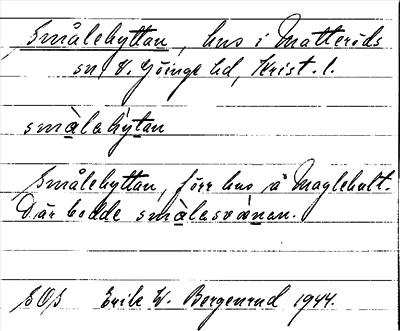 Smålehyttan, hus i Matteröds
sn, V. Göinge hd, Krist. l.
smàlehýtan
Smålehyttan, förr hus å Maglehult.
Där bodde smàlesvànen.
SOS Erik W. Bergenrud 1944.